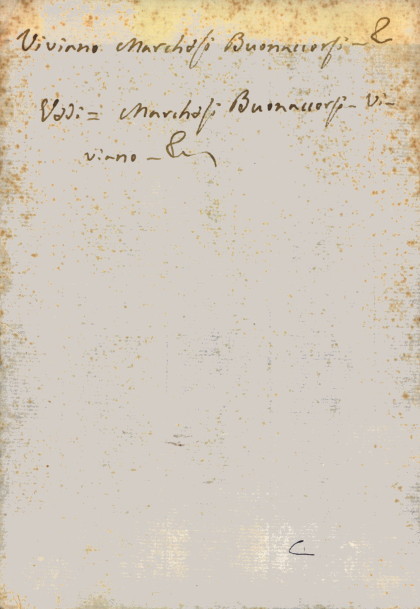 Viviano Marchesi Buonaccorsi - &
Vedi = Marchesi Buonaccorsi - Vi-
viano - &
C.